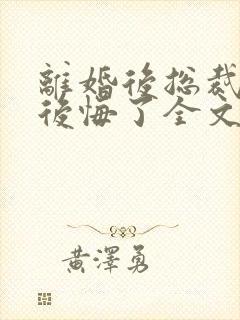 離婚後总裁
後悔了全文
黃澤勇